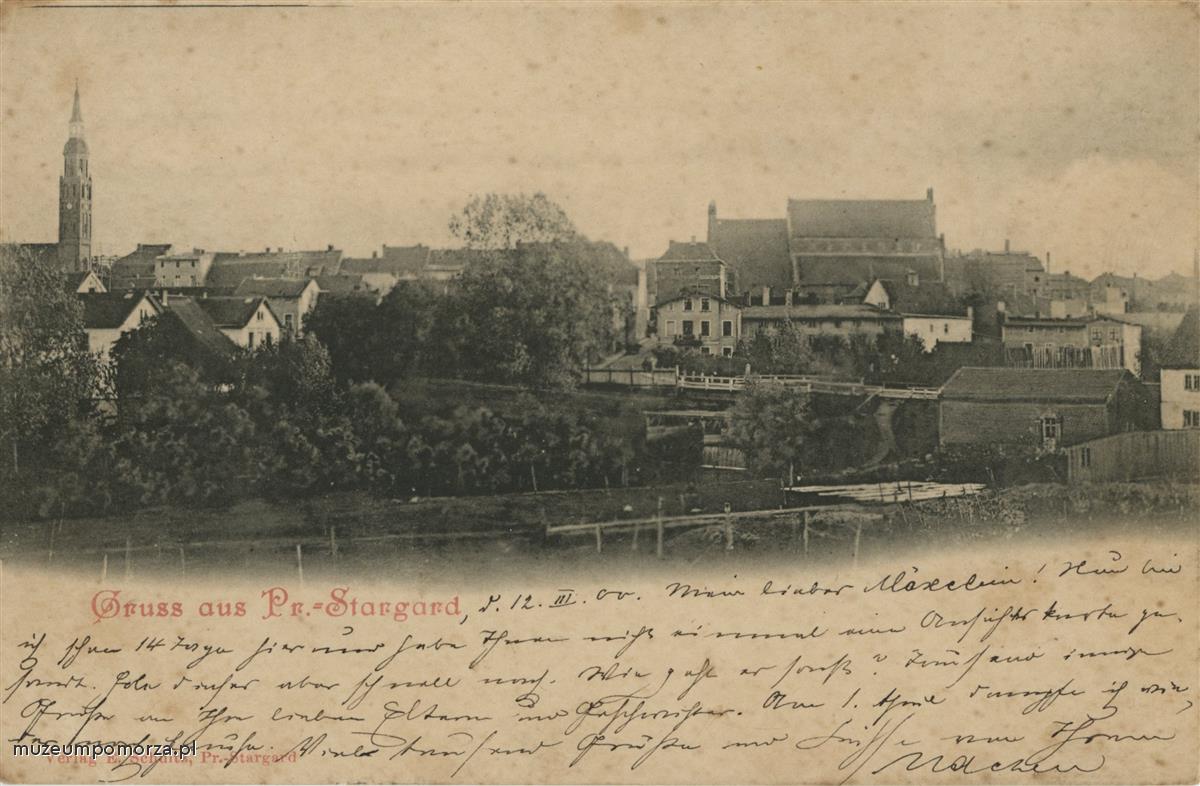 Gruss aus Pr.-Stargard, d. 12. III. 00. Mein lieber Mäxchen! Nun bin
ich schon 14 Tage hier und habe Ihnen nicht einmal eine Ansichtskarte ge-
sandt. Hole dieses aber schnell nach. Wie geht es sonst? Tausend innige
Grüße an Ihre lieben Eltern und Geschwister. Am 1. April dampfe ich wie-
der nach Hause. Viele tausend Grüße und Küsse von Ihrem
muzeumpomorza.pl
Verlag E. Schultz, Pr.-Stargard